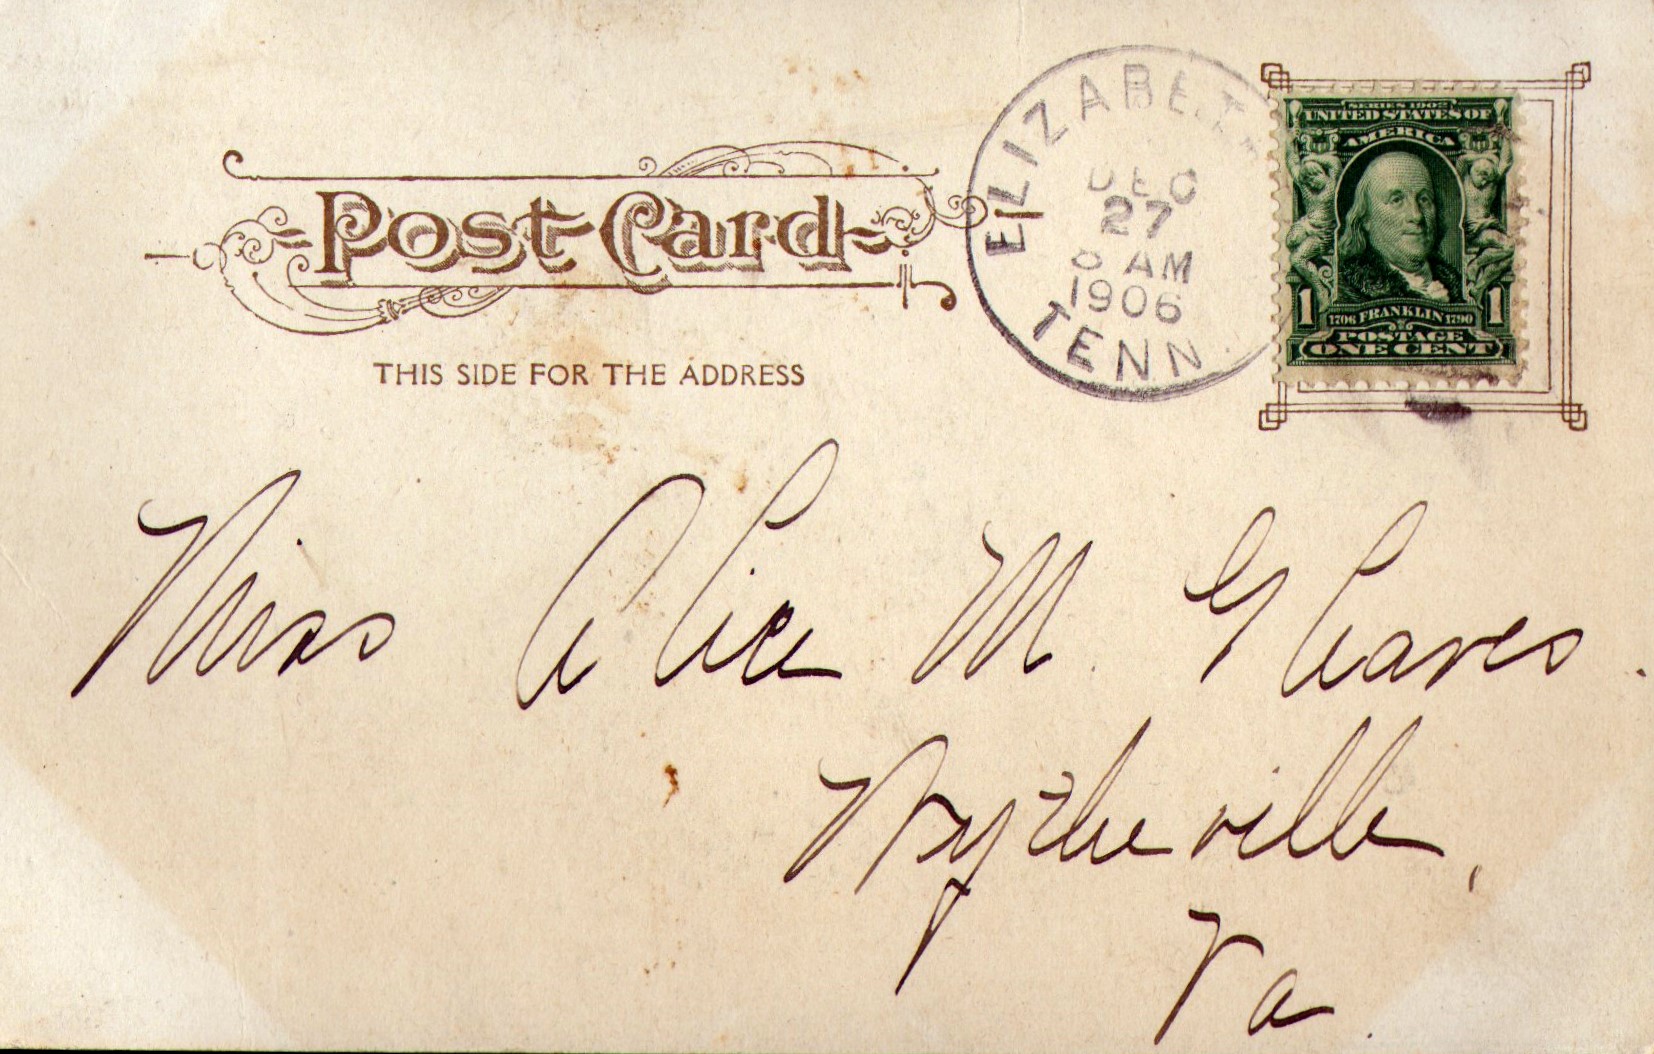 Post Card
THIS SIDE FOR THE ADDRESS
ELIZABET
DEC
27
AM
1906
TENN
SERIES 1902
UNITED STATES OF
AMERICA
1 1
1706 FRANKLIN 1790
POSTAGE
ONE CENT
Miss Alice M. Gleaves.
Wytheville,
Va.